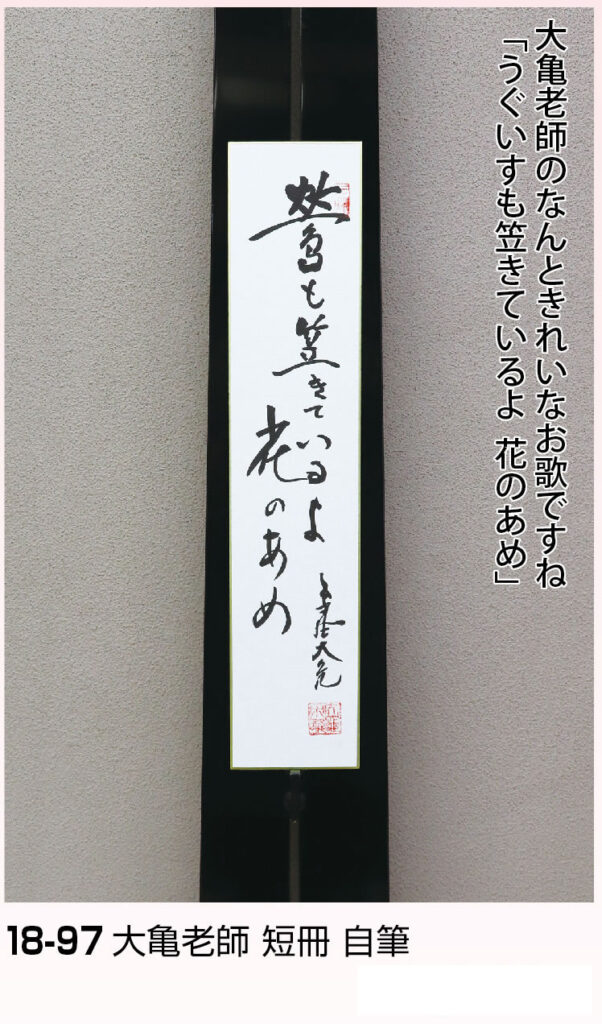 大亀老師のなんときれいなお歌ですね
「うぐいすも笠きているよ 花のあめ」
鶯も笠きているよ
花のあめ
大亀
18-97 大亀老師 短冊 自筆